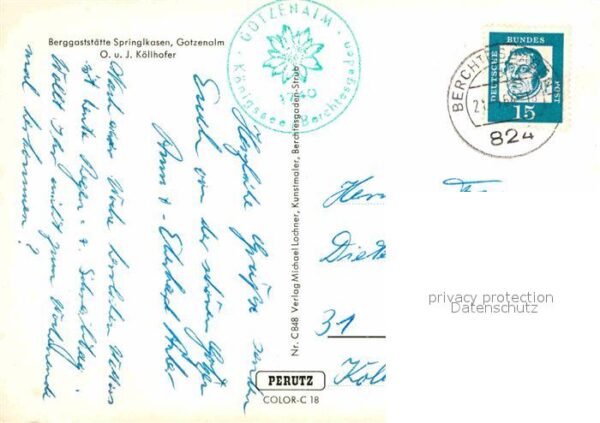 Berggaststätte Springlkasen, Gotzenalm
O. u. J. Köllhofer
GOTZENALM
Königssee Berchtesgaden
DEUTSCHE BUNDESPOST
15
BERCHTE
824
Herzliche Grüße senden
Euch von der schönen Gotzen
Nach einer Woche herrlichen Wetters
ist heute Regen- u.
Wollt Ihr nicht zum Wochenende
mal herkommen?
Nr. C 848 Verlag Michael Lochner, Kunstmaler, Berchtesgaden-Strub
Diete
31
Köl
PERUTZ
COLOR-C 18
privacy protection
Datenschutz